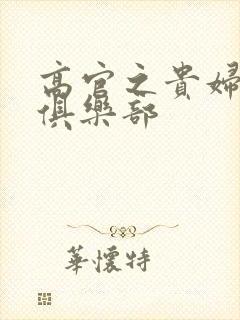 高官之貴婦
俱樂部
華懷特